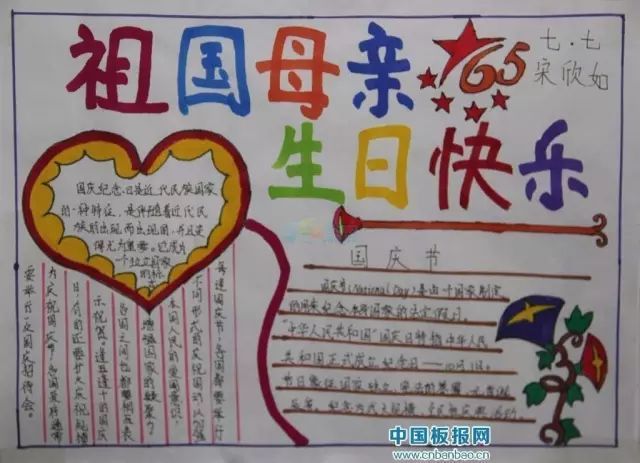 祖国母亲
65
七.七
宋欣如
生日快乐
国庆纪念日是近代民族国家
的一种特征，是伴随着近代民
族的出现而出现的，并且变
得尤为重要。它成为
一个独立国家
的标
国庆节
国庆节(National Day)是由一个国家制定
的国家的法定假日。
"中华人民共和国"国庆日特指中华人民
共和国正式成立纪念日——10月1日。
每逢国庆节，各国都要举行
不同形式的庆祝活动，以加强
本国人民的爱国意识，
增强国家的凝聚力。
各国之间也都要相互表
示祝贺。逢五逢十的国庆
日，有的还要扩大庆祝规模。
为庆祝国庆节，各国政府通常
要举行一次国庆招待会。
中国板报网
www.cnbanbao.cn